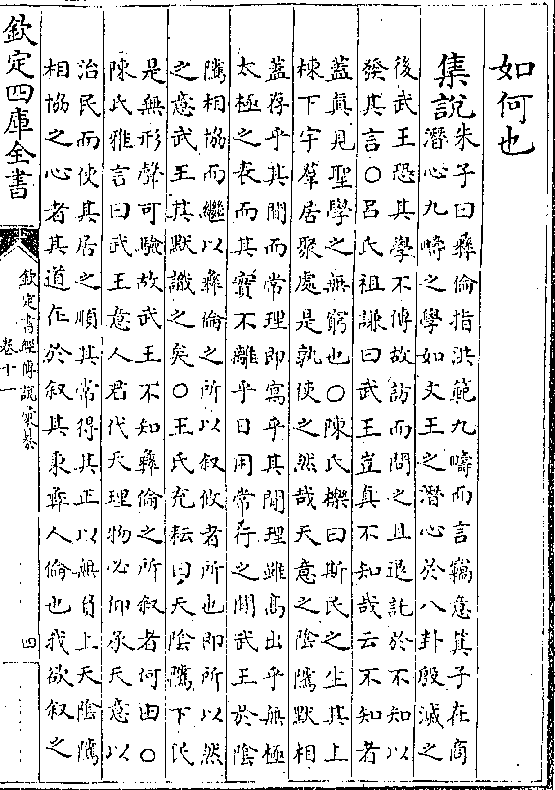 如何也
集說朱子曰彛倫指洪範九疇而言竊意箕子在商
潛心九疇之學如文王之潛心於八卦殷滅之
後武王恐其學不傳故訪而問之且退託於不知以
發其言○呂氏祖謙曰武王豈真不知哉云不知者
蓋眞見聖學之無窮也○陳氏櫟曰斯民之生其上
棟下宇羣居聚處是孰使之然哉天意之陰隲默相
蓋存乎其間而常理即寓乎其間理雖高出乎無極
太極之表而其實不離乎日用常行之間武王於陰
隲相協而繼以彛倫之所以叙攸者所也即所以然
之意武王其默識之矣○王氏充耘曰天陰隲下民
是無形聲可驗故武王不知彛倫之所叙者何由○
陳氏雅言曰武王意人君代天理物必仰承天意以
治民而使其居之順其常得其正以無負上天陰隲
相協之心者其道在於叙其秉彛人倫也我欲叙之
欽定四庫全書
欽定書經傳說彙纂
卷十一
四